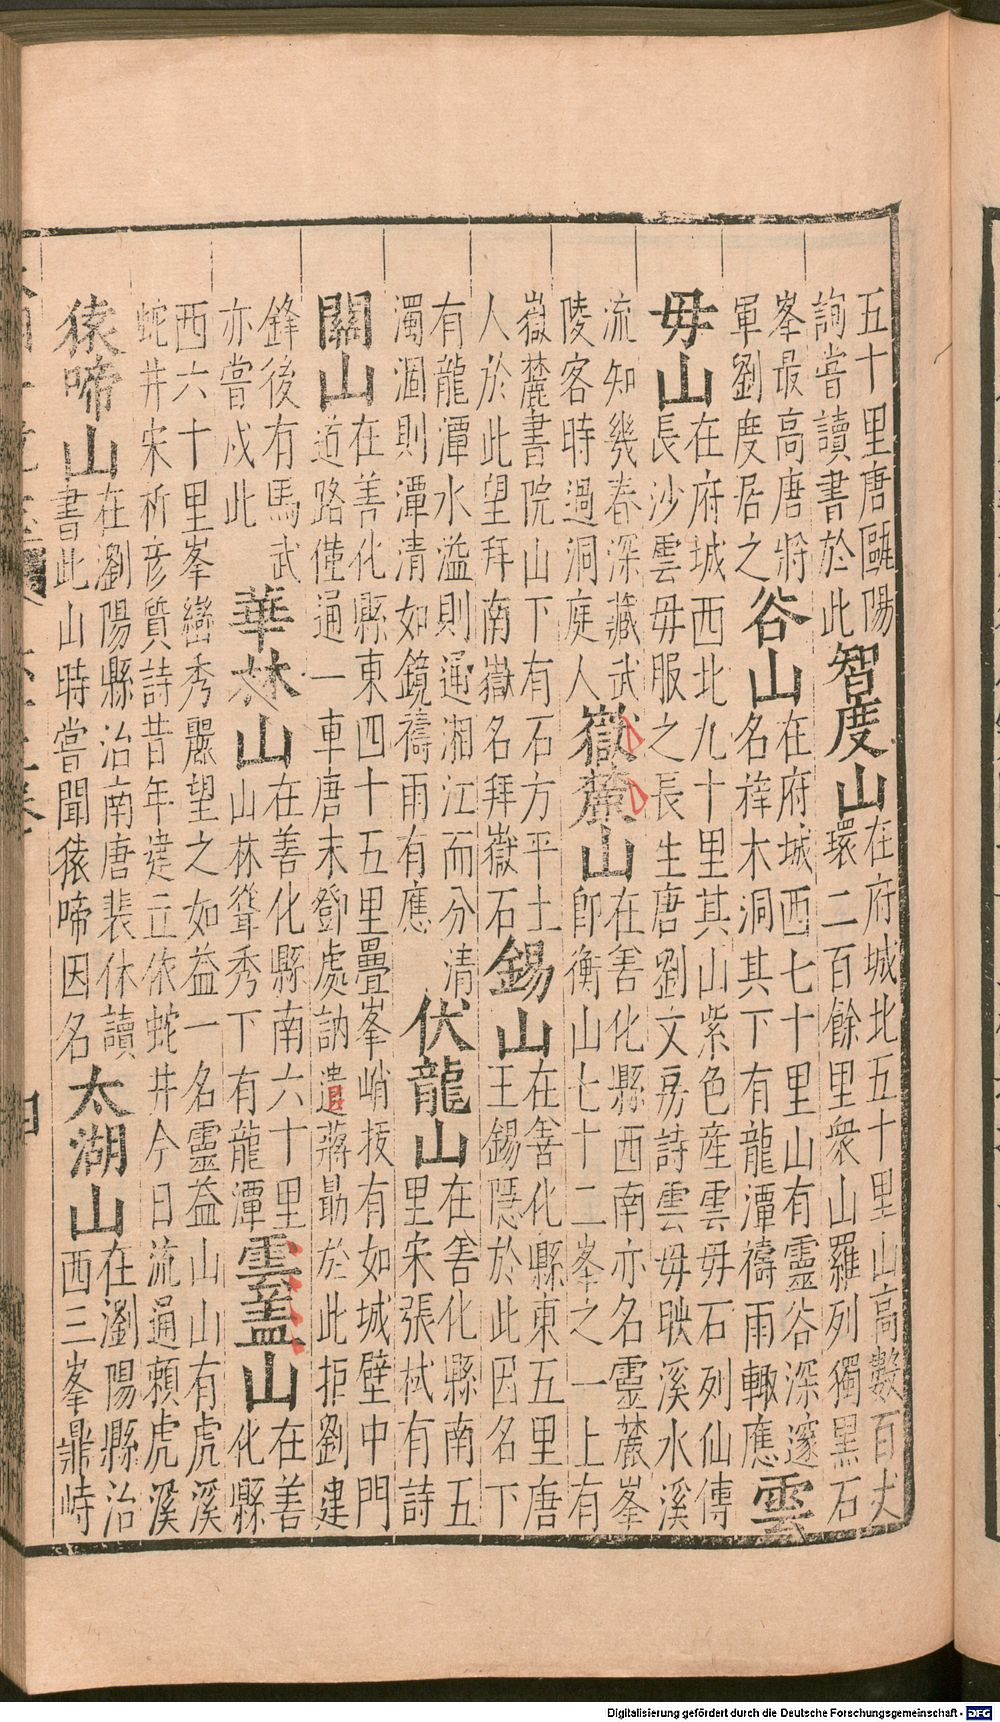 五十里唐甌陽
詢嘗讀書於此
智度山
在府城北五十里山高數百丈
環二百餘里衆山羅列獨黑石
峯最高唐將
軍劉度居之
谷山
在府城西七十里山有靈谷深邃
名梓木洞其下有龍潭禱雨輙應
雲
毋山
在府城西北九十里其山紫色産雲毋石列仙傳
長沙雲毋服之長生唐劉文房詩雲毋映溪水溪
流知幾春深藏武
陵客時過洞庭人
嶽麓山
在善化縣西南亦名靈麓峯
即衡山七十二峯之一上有
嶽麓書院山下有石方平士
人於此望拜南嶽名拜嶽石
錫山
在善化縣東五里唐
王錫隱於此因名下
有龍潭水溢則通湘江而分清
濁涸則潭清如鏡禱雨有應
伏龍山
在善化縣南五
里宋張栻有詩
關山
在善化縣東四十五里疊峯峭拔有如城壁中門
道路僅通一車唐末鄧處訥遣蔣勛於此拒劉建
鋒後有馬武
亦嘗戍此
華林山
在善化縣南六十里
山林聳秀下有龍潭
雲蓋山
在善
化縣
西六十里峯巒秀麗望之如益一名靈益山山有虎溪
蛇井宋析彦質詩昔年建立依蛇井今日流通頼虎溪
猿啼山
在劉陽縣治南唐裴休讀
書此山時嘗聞猿啼因名
太湖山
在瀏陽縣治
西三峯鼎峙
Digitalisierung gefördert durch die Deutsche Forschungsgemeinschaft - DFG